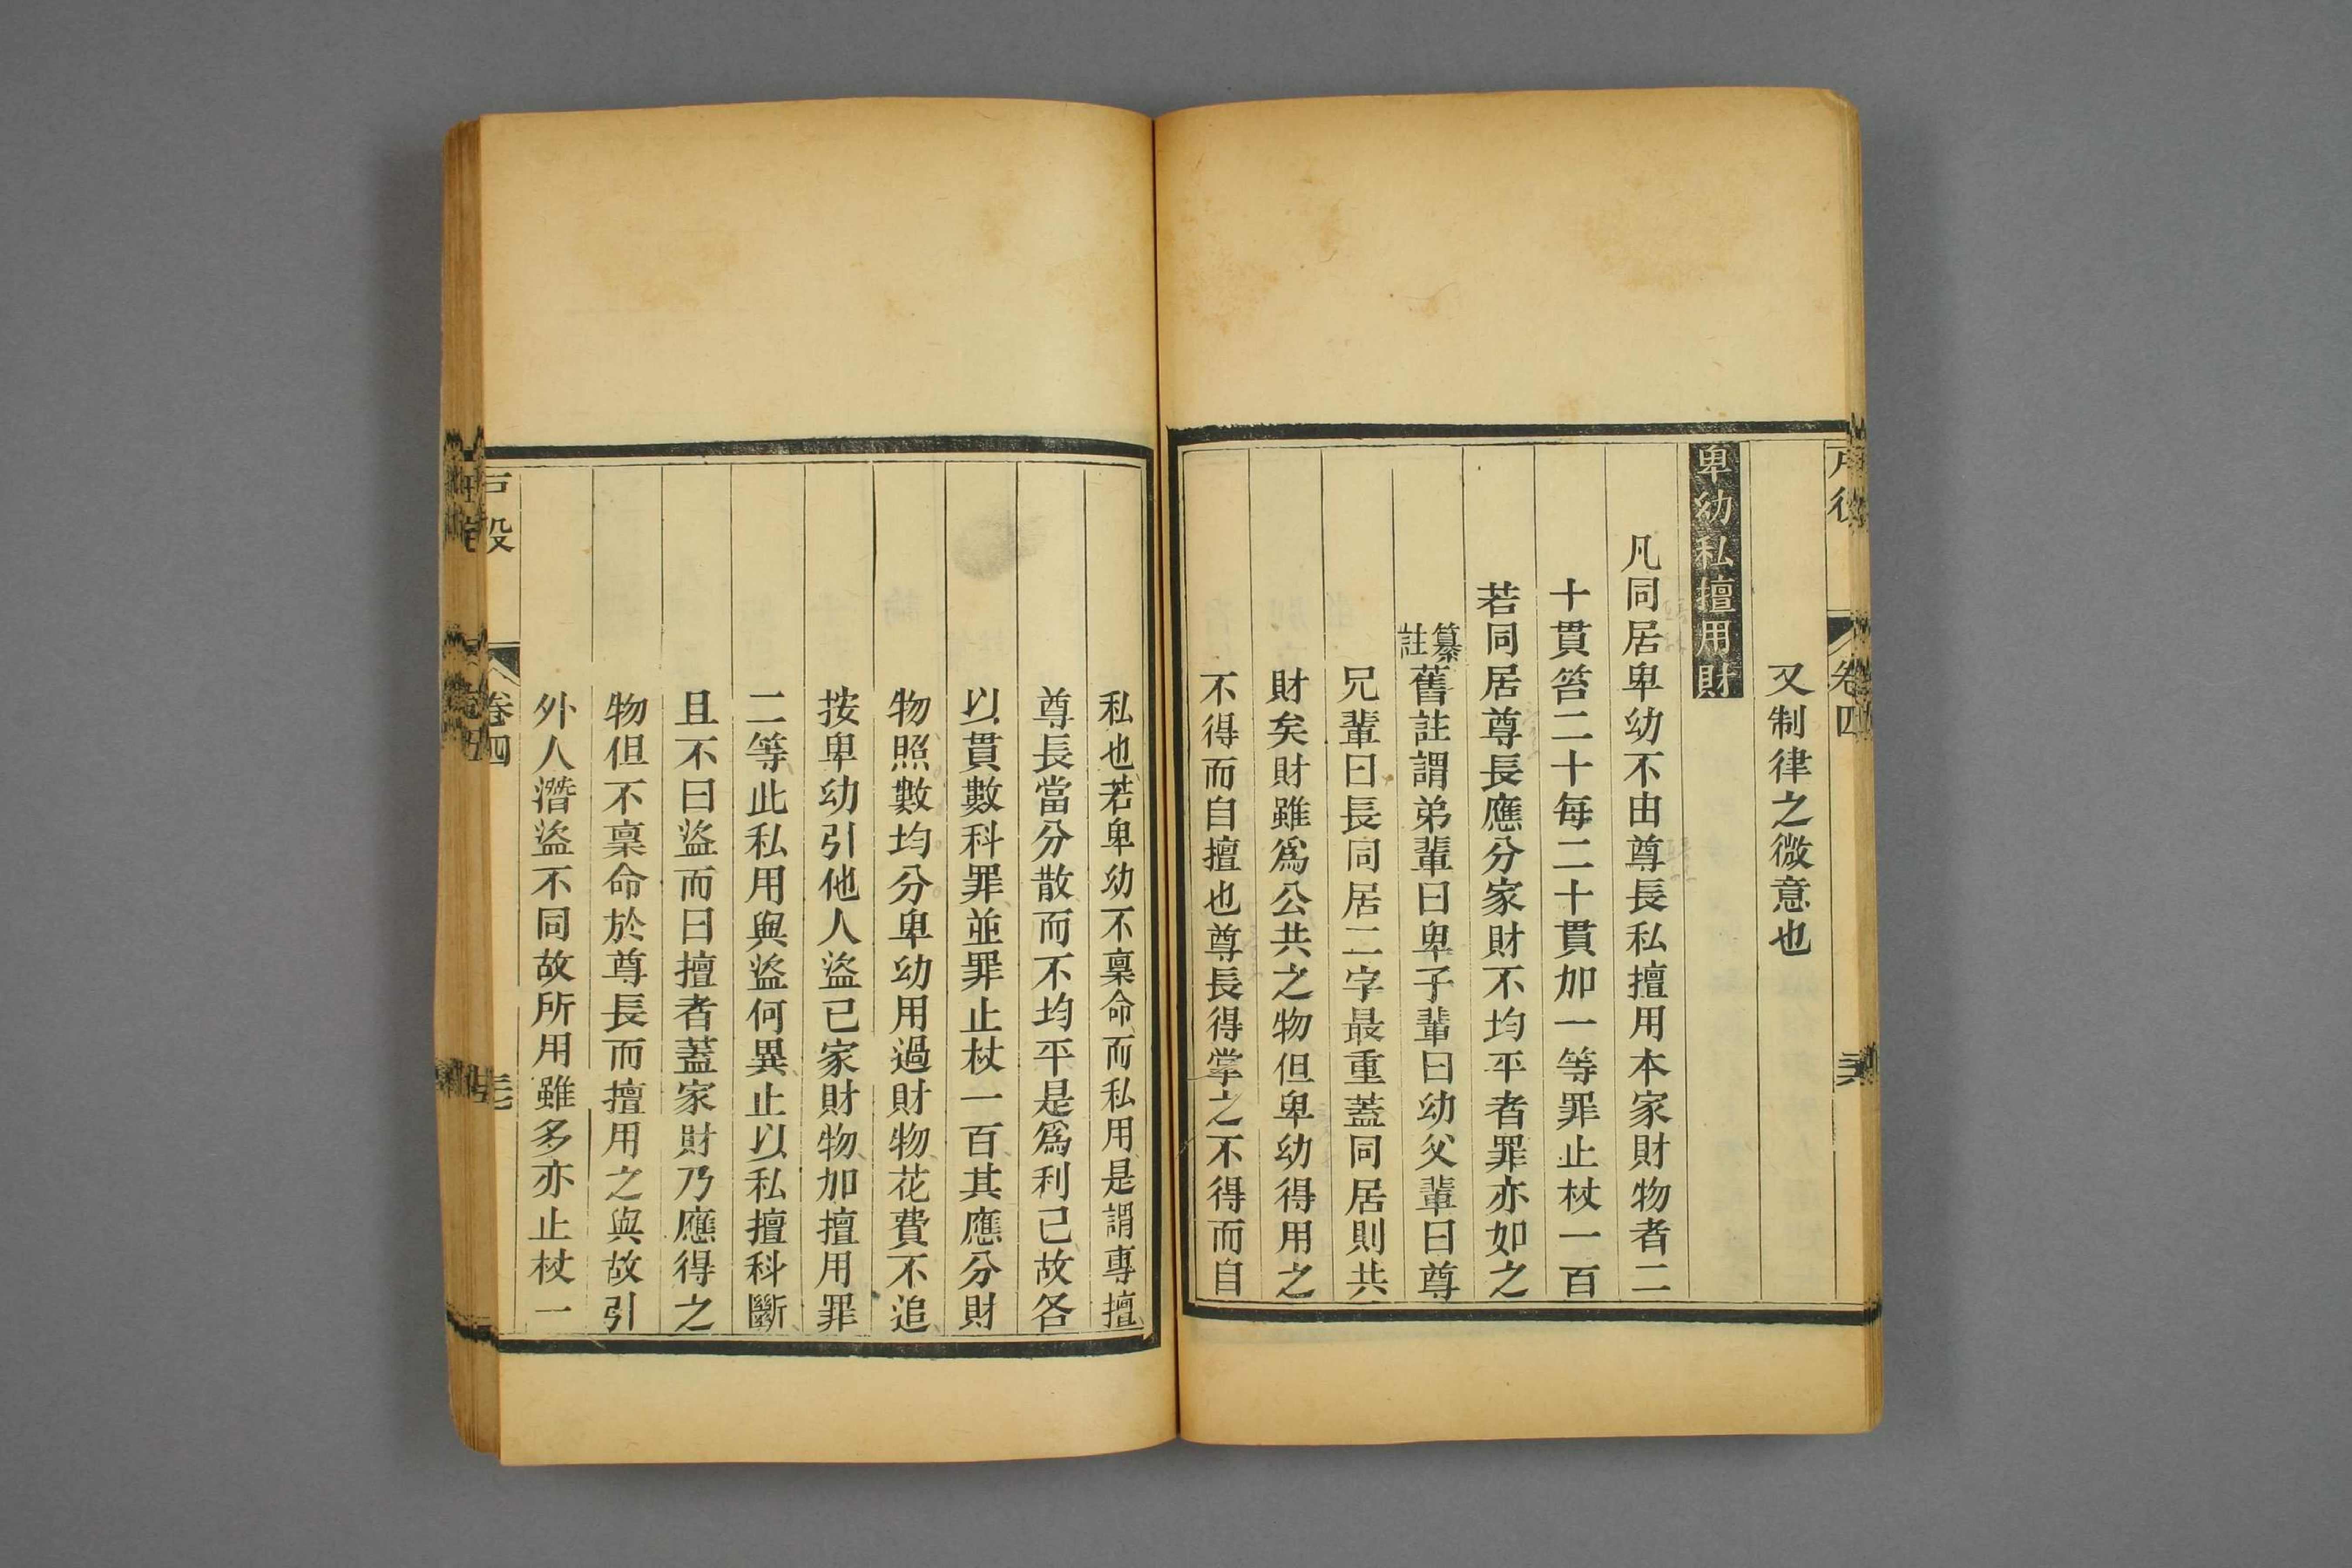 又制律之微意也
卑幼私擅用財
凡同居卑幼不由尊長私擅用本家財物者二
十貫笞二十每二十貫加一等罪止杖一百
若同居尊長應分家財不均平者罪亦如之
纂註舊註謂弟輩曰卑子輩曰幼父輩曰尊
兄輩曰長同居二字最重蓋同居則共
財矣財雖爲公共之物但卑幼得用之
不得而自擅也尊長得掌之不得而自
私也若卑幼不稟命而私用是謂專擅
尊長當分散而不均平是爲利已故各
以貫數科罪並罪止杖一百其應分財
物照數均分卑幼用過財物花費不追
按卑幼引他人盜已家財物加擅用罪
二等此私用與盜何異止以私擅科斷
且不曰盜而曰擅者蓋家財乃應得之
物但不稟命於尊長而擅用之與故引
外人潛盜不同故所用雖多亦止杖一
卷四
卷四